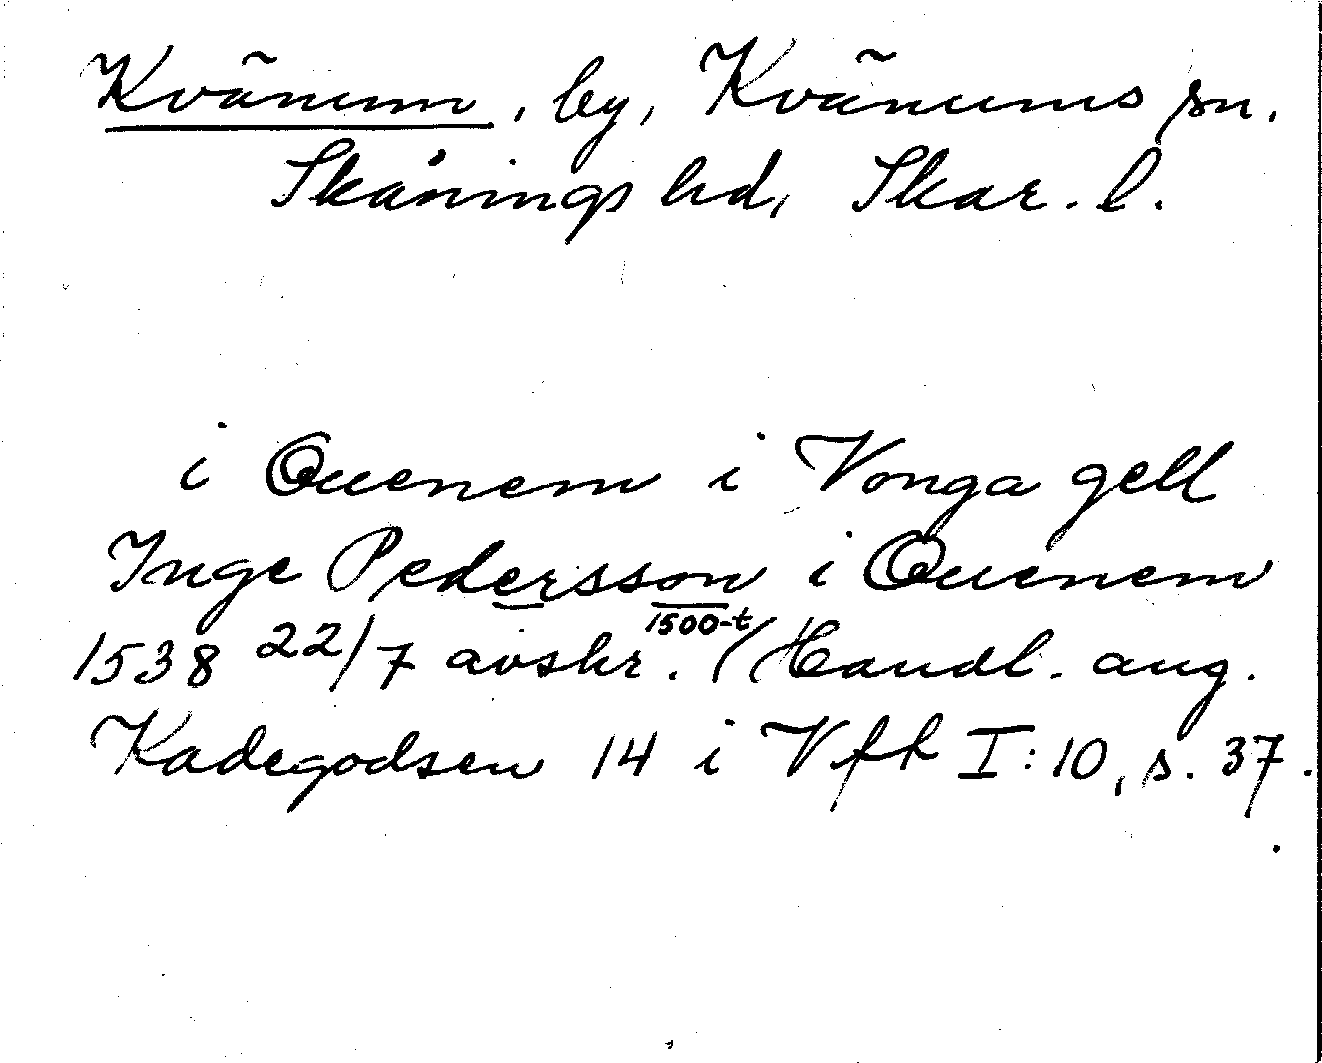 Kvänum, by, Kvänums sn.
Skånings hd, Skar. l.
i Quenem i Vonga gell
Inge Pedersson i Quenem
1500-t
1538 22/7 avskr. (Handl. ang.
Kadegodsen 14 i Vft I:10, s. 37.